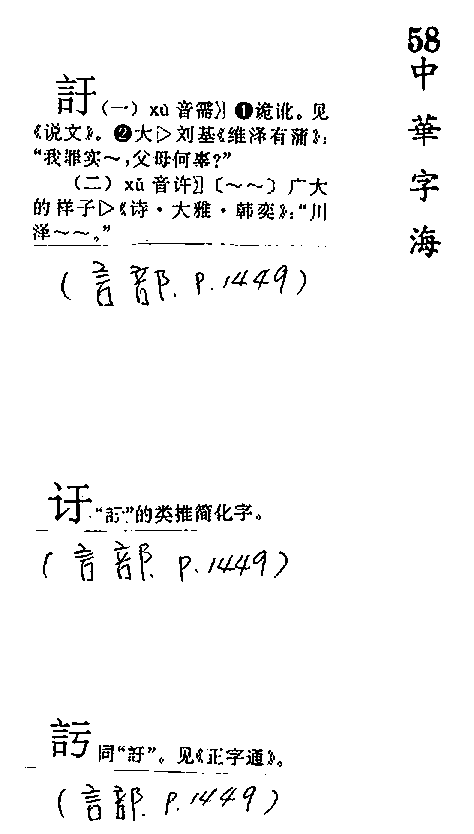 58
中華字海
訏 (一) xū 音需〗❶诡讹。见
《说文》。❷大▷刘基《维泽有蒲》：
“我罪实～，父母何辜？”
(二) xǔ 音许〗〔～～〕广大
的样子▷《诗·大雅·韩奕》：“川
泽～～。”
(言部. P.1449)
讦 “訏”的类推简化字。
(言部. P.1449)
訡 同“訏”。见《正字通》。
(言部. P.1449)